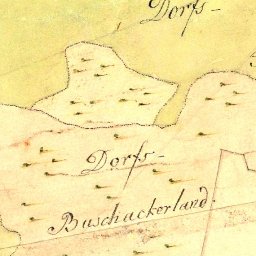 Dorfs-
Dorfs-
Buschackerland.